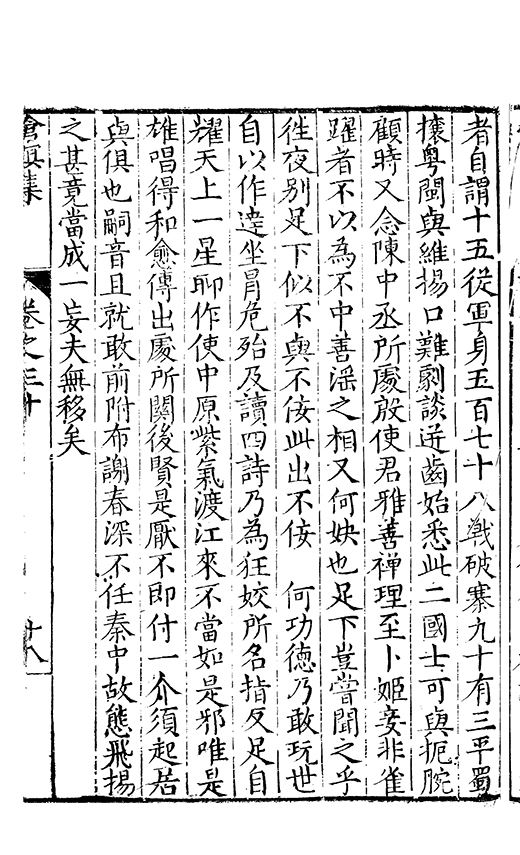 者自謂十五從軍身五百七十八戰破寨九十有三平蜀
攘粵閩與維揚口難劇談迸齒始悉此二國士可與扼腕
顧時又念陳中丞所處殷使君雅善禪理至卜姬妾非雀
躍者不以為不中善淫之相又何娛也足下豈嘗聞之乎
往夜別足下似不與不佞此出不佞 何功德乃敢玩世
自以作達坐冐危殆及讀四詩乃為狂姣所名指反足自
耀天上一星聊作使中原紫氣渡江來不當如是邪唯是
雄唱得和愈傳出處所關後賢是厭不即付一介須起居
與俱也嗣音且就敢前附布謝春深不任秦中故態飛揚
之甚竟當成一妄夫無移矣
滄溟集 卷之三十 十八